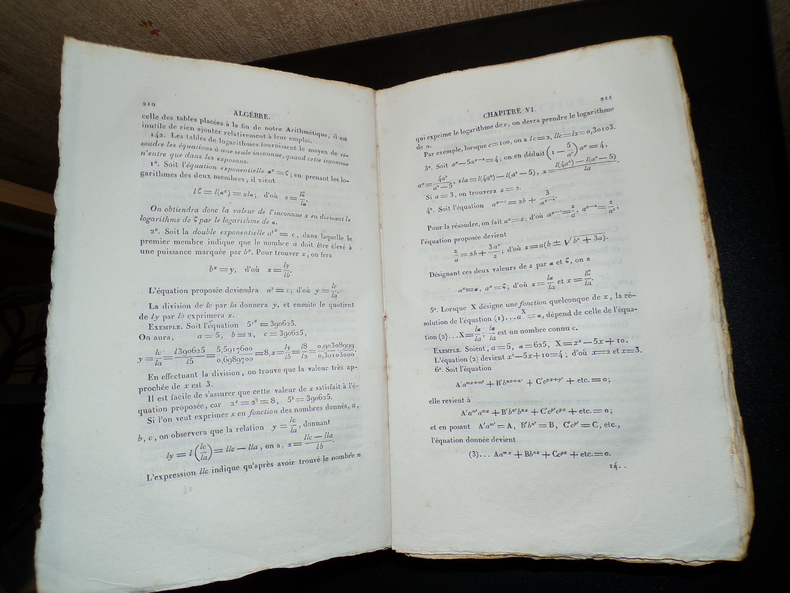 210
ALGÈBRE.
celle des tables placées à la fin de notre Arithmétique, il est
inutile de rien ajouter relativement à leur emploi.
142. Les tables de logarithmes fournissent le moyen de ré-
soudre les équations à une seule inconnue, quand cette inconnue
n'entre que dans les exposans.
1°. Soit l'équation exponentielle aˣ = ζ; en prenant les lo-
garithmes des deux membres, il vient
lζ = l(aˣ) = xla; d'où x = lζ/la.
On obtiendra donc la valeur de l'inconnue x en divisant le
logarithme de ζ par le logarithme de a.
2°. Soit la double exponentielle a^(bˣ) = c, dans laquelle le
premier membre indique que le nombre a doit être élevé à
une puissance marquée par bˣ. Pour trouver x, on fera
bˣ = y, d'où x = ly/lb.
L'équation proposée deviendra aʸ = c; d'où y = lc/la.
La division de lc par la donnera y, et ensuite le quotient
de ly par lb exprimera x.
EXEMPLE. Soit l'équation 5^(2ˣ) = 390625.
On aura, a = 5, b = 2, c = 390625,
y = lc/la = l390625/l5 = 5,5917600/0,6989700 = 8, x = ly/lb = l8/l2 = 0,90308999/0,30103000.
En effectuant la division, on trouve que la valeur très ap-
prochée de x est 3.
Il est facile de s'assurer que cette valeur de x satisfait à l'é-
quation proposée, car 2ˣ = 2³ = 8, 5⁸ = 390625.
Si l'on veut exprimer x en fonction des nombres donnés, a,
b, c, on observera que la relation y = lc/la, donnant
ly = l(lc/la) = llc − lla, on a, x = (llc − lla)/lb.
L'expression llc indique qu'après avoir trouvé le nombre n
CHAPITRE VI.
211
qui exprime le logarithme de c, on devra prendre le logarithme
de n.
Par exemple, lorsque c = 100, on a lc = 2, llc = l2 = 0,30103.
3°. Soit aˣ − 5aˣ⁻ = 4; on en déduit (1 − 5/aᵛ)aˣ = 4,
Si a = 3, on trouvera x = 2.
4°. Soit l'équation
Pour la résoudre, on fait aˣ = z; d'où
l'équation proposée devient
z/a = zb + 3aᵛ/z, d'où z = a(b ± √(b² + 3a).
Désignant ces deux valeurs de z par α et ζ, on a
aˣ = α, aˣ = ζ, d'où x = lα/la et x = lζ/la.
5°. Lorsque X désigne une fonction quelconque de x, la ré-
solution de l'équation (1)...a^X = α, dépend de celle de l'équa-
tion (2)...X = lα/la; lα/la est un nombre connu c.
EXEMPLE. Soient, a = 5, α = 625, X = x² − 5x + 10.
L'équation (2) devient x² − 5x + 10 = 4; d'où x = 2 et x = 3.
6°. Soit l'équation
+ etc. = 0;
elle revient à
+ etc. = 0;
et en posant = A, = B, = C, etc.,
l'équation donnée devient
(3)... Aaᵐˣ + Bbⁿˣ + Ccᵖˣ + etc. = 0.
14..